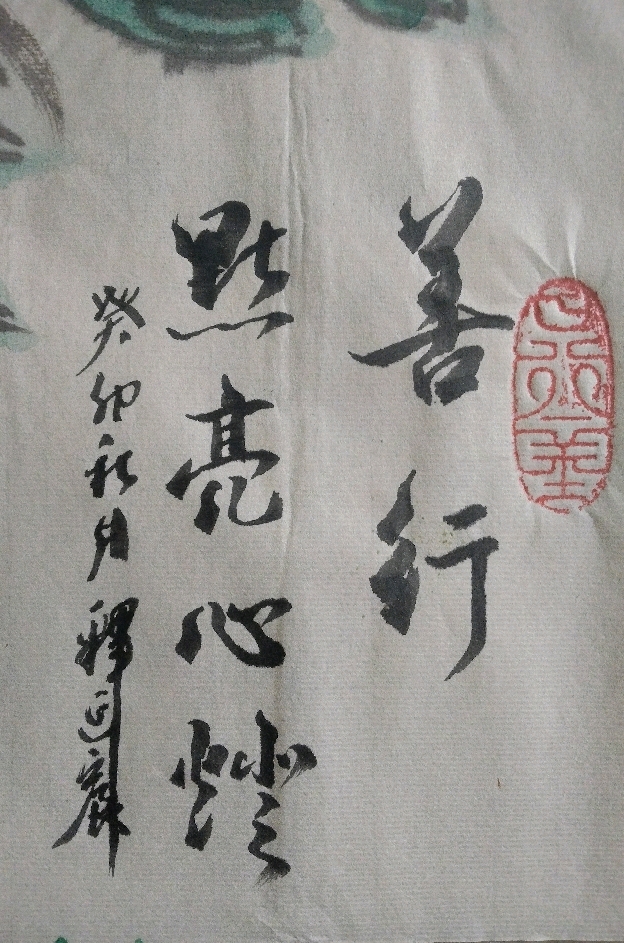 善行
點亮心燈
癸卯秋月釋延